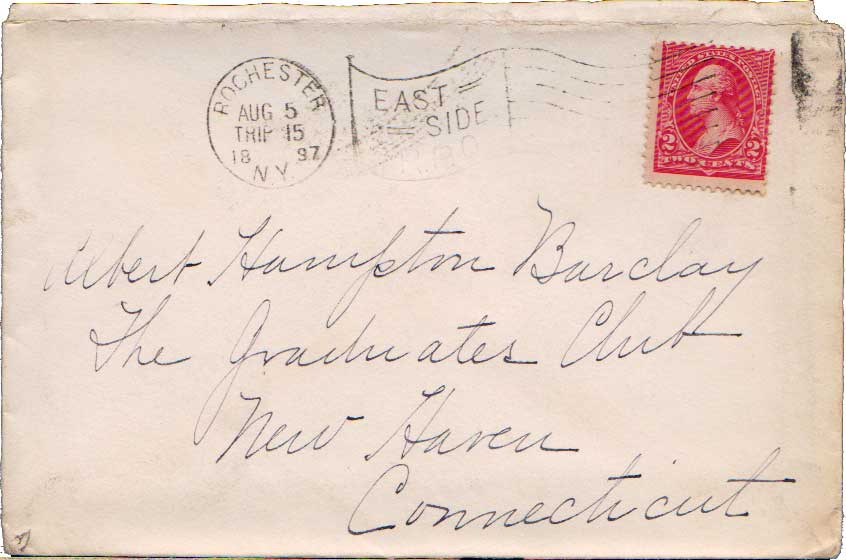 ROCHESTER
AUG 5
TRIP 15
18 97
N.Y.
EAST
SIDE
R.P.O.
UNITED STATES POSTAGE
2 2
TWO CENTS
Albert Hampton Barclay
The Graduates Club
New Haven
Connecticut